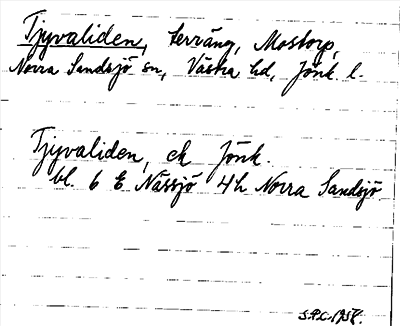 Tjyvaliden, terräng, Mostorp,
Norra Sandsjö sn, Västra hd, Jönk. l.
Tjyvaliden, ek Jönk.
bl. 6 E Nässjö 4h Norra Sandsjö